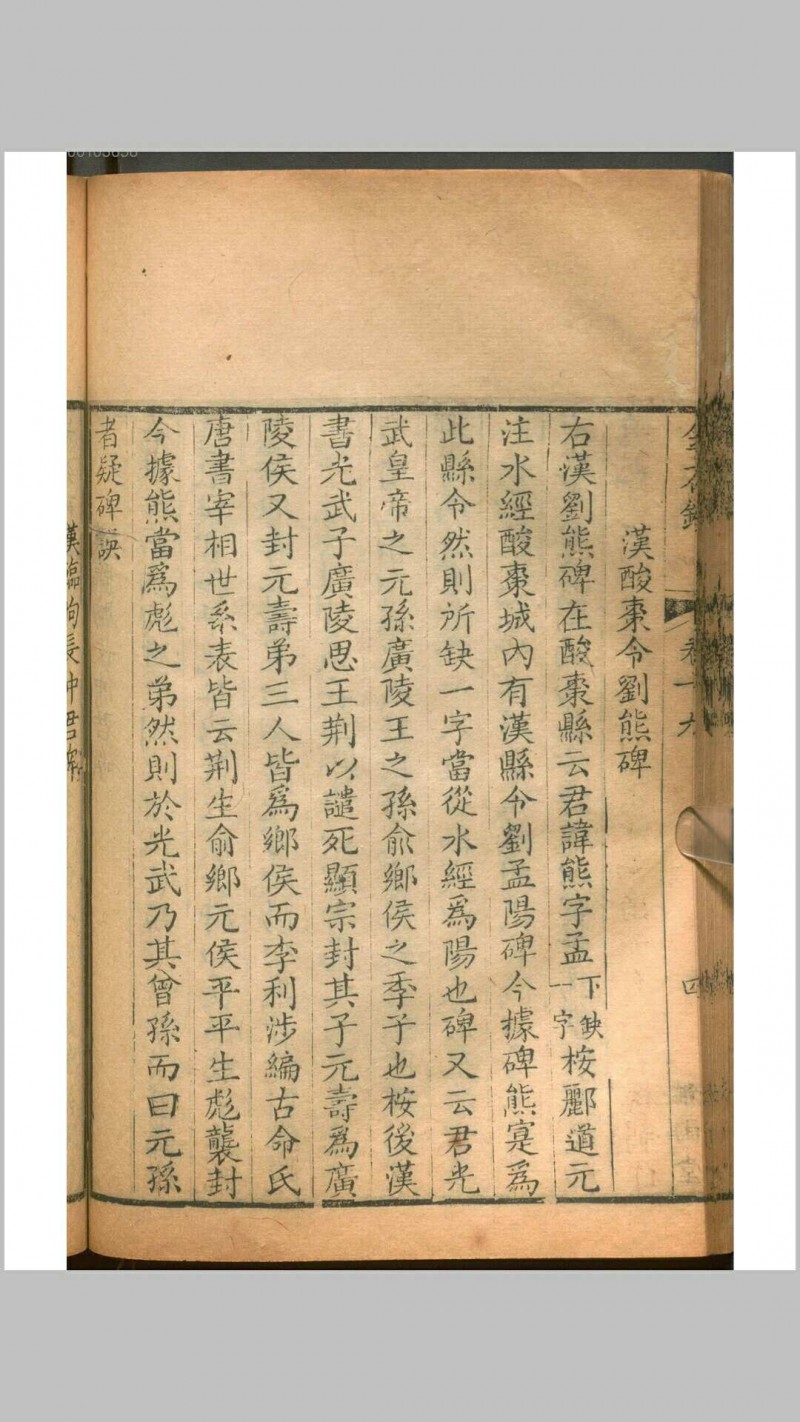 金石錄 卷十九 四
漢酸棗令劉熊碑
右漢劉熊碑在酸棗縣云君諱熊字孟下缺一字桉酈道元
注水經酸棗城內有漢縣令劉孟陽碑今據碑熊寔爲
此縣令然則所缺一字當從水經爲陽也碑又云君光
武皇帝之元孫廣陵王之孫俞鄉侯之季子也桉後漢
書光武子廣陵思王荆以譴死顯宗封其子元壽爲廣
陵侯又封元壽弟三人皆爲鄉侯而李利涉編古命氏
唐書宰相世系表皆云荆生俞鄉元侯平平生彪襲封
今據熊當爲彪之弟然則於光武乃其曾孫而曰元孫
者疑碑誤
漢臨朐長仲君碑